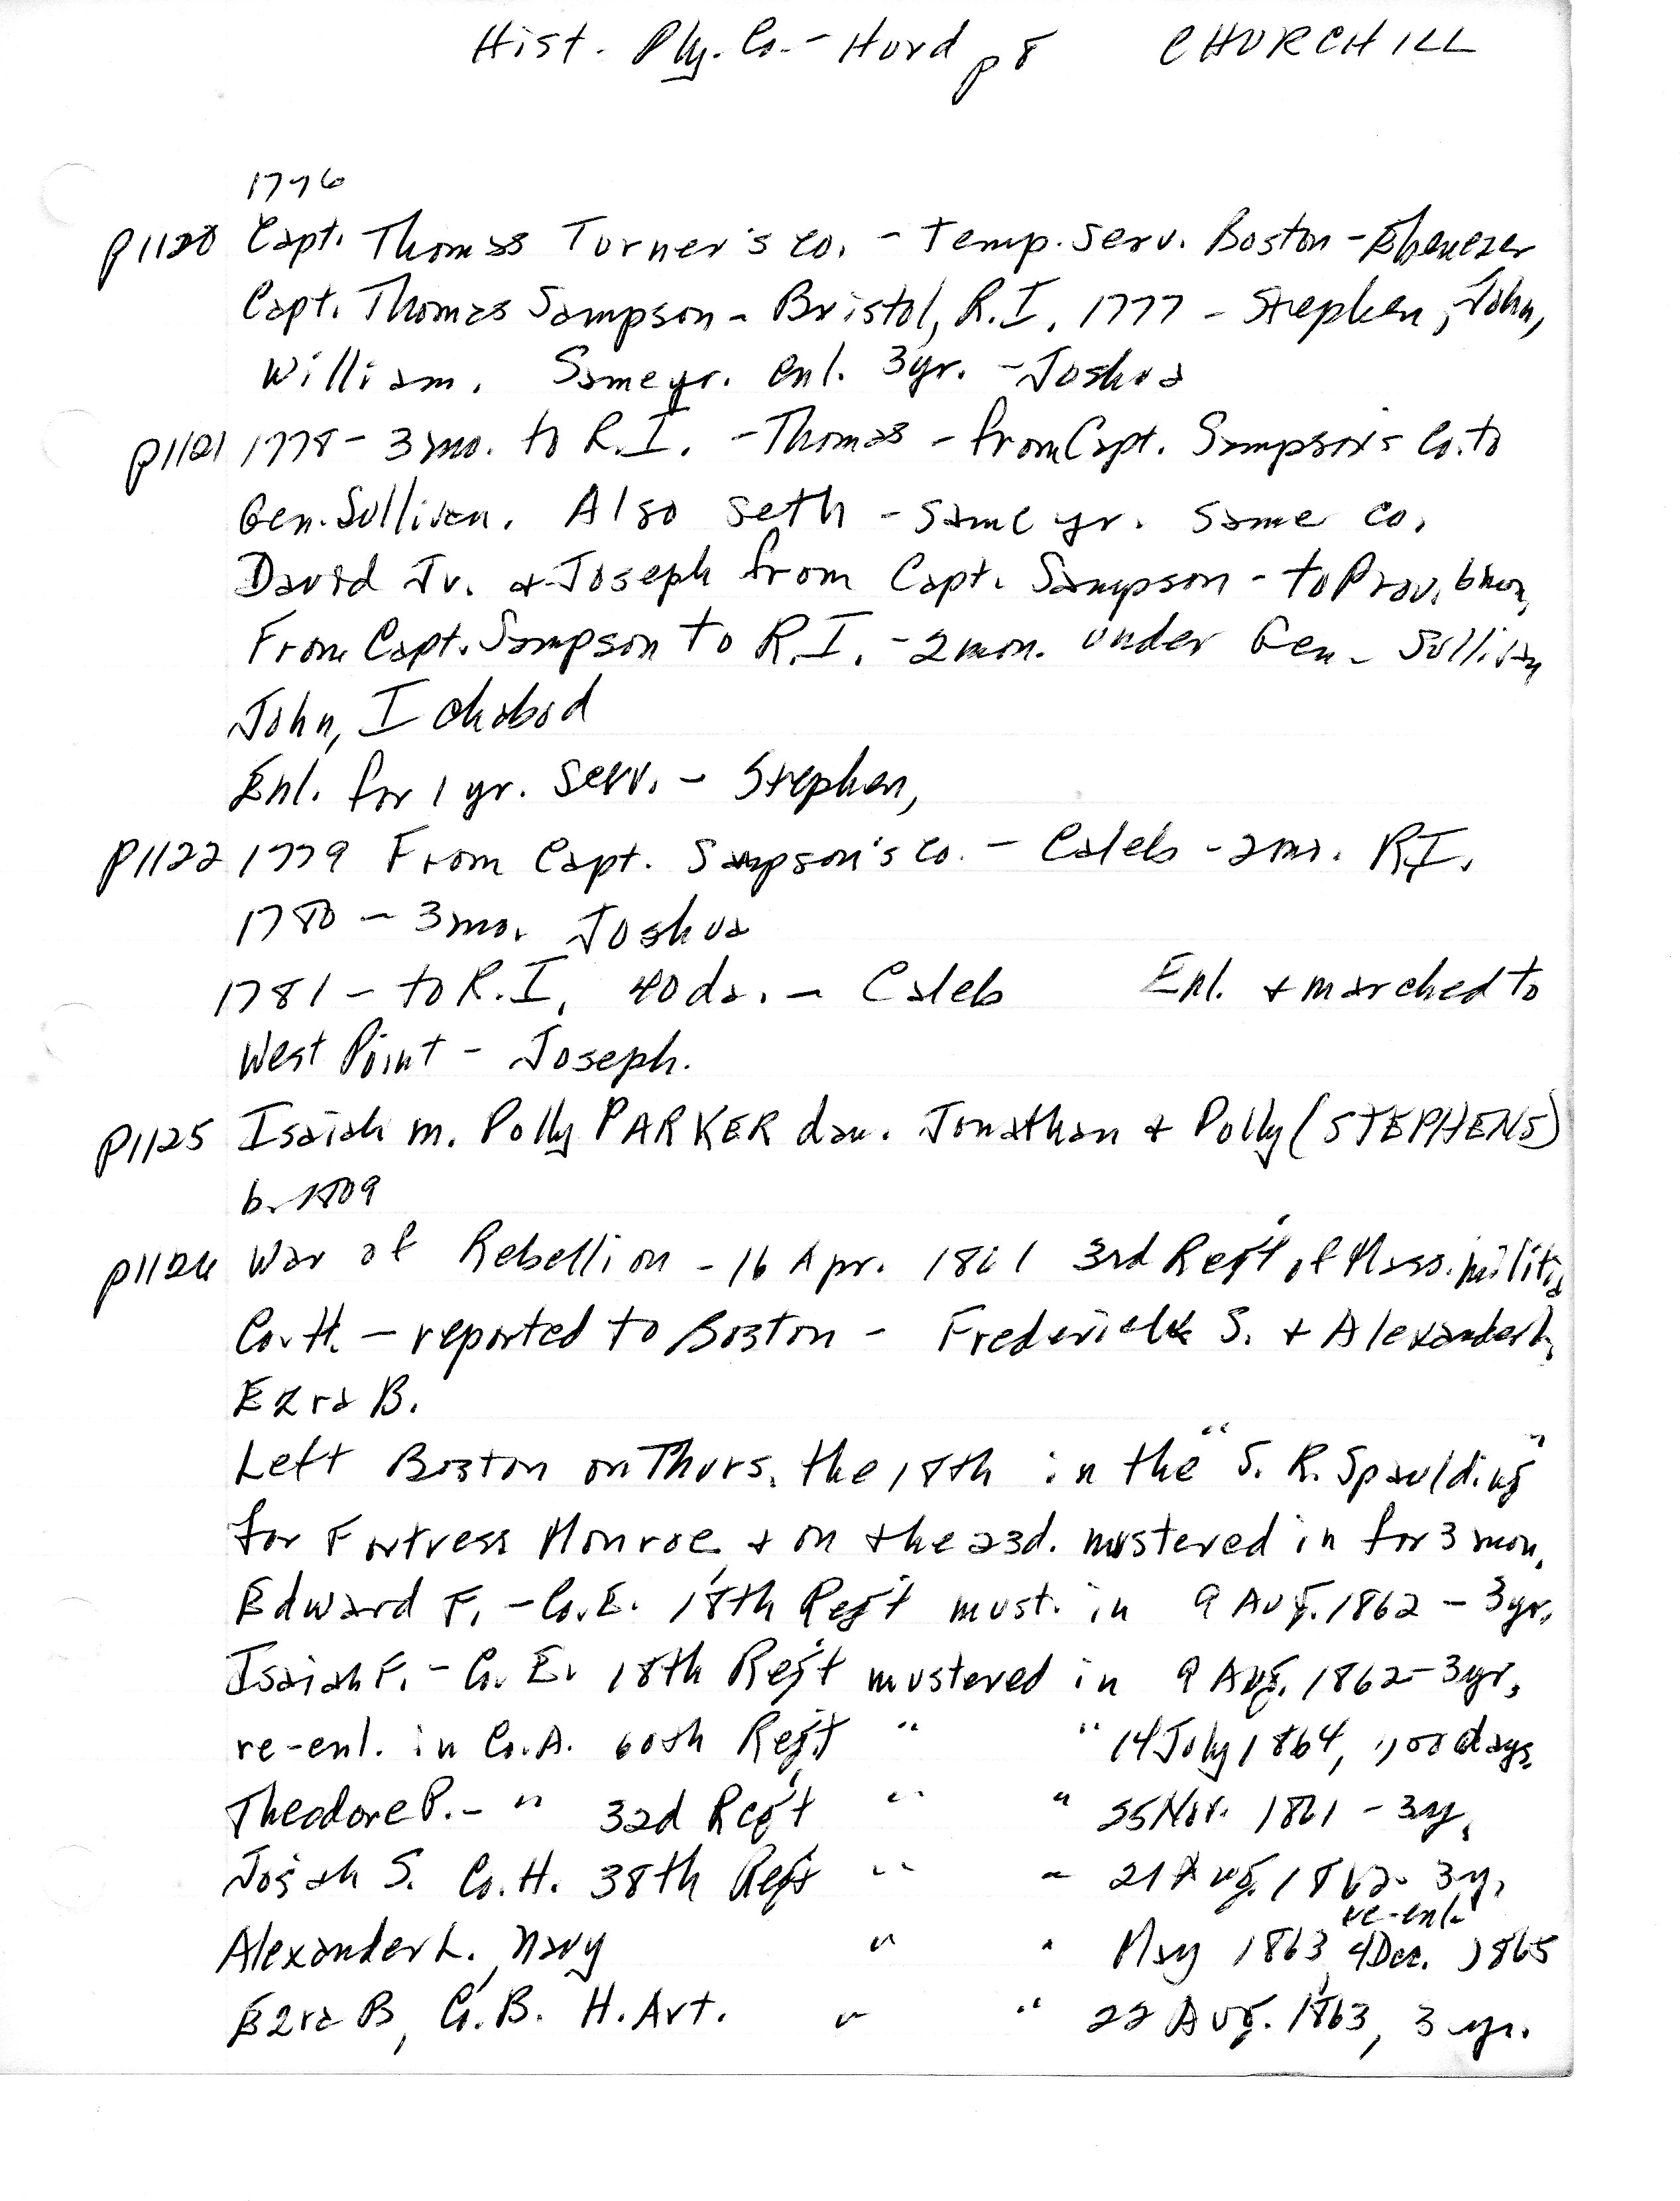 Hist. Ply. Co. - Hurd p 8 CHURCHILL
1776
p1120 Capt. Thomas Turner's co. - Temp. Serv. Boston - Ebenezer
Capt. Thomas Sampson - Bristol, R.I. 1777 - Stephen, John,
William. Same yr. enl. 3yr. - Joshua
p1121 1778 - 3 mo. to R.I. - Thomas - from Capt. Sampson's Co. to
Gen. Sullivan. Also Seth - same yr. same co.
David Jr. & Joseph from Capt. Sampson - to Prov. 6 mon.
From Capt. Sampson to R.I. - 2 mon. under Gen. Sullivan
John, Ichabod
Enl. for 1 yr. serv. - Stephen,
p1122 1779 From Capt. Sampson's co. - Caleb - 2 mo. R.I.
1780 - 3 mo. Joshua
1781 - to R.I. 40 da. - Caleb Enl. & marched to
West Point - Joseph.
p1125 Isaiah m. Polly PARKER dau. Jonathan & Polly (STEPHENS)
b. 1809
p1126 War of Rebellion - 16 Apr. 1861 3rd Reg't of Mass. militia
Co. H. - reported to Boston - Frederick S. & Alexander L.
Ezra B.
Left Boston on Thurs. the 18th in the "S. R. Spaulding"
for Fortress Monroe & on the 23d. mustered in for 3 mon.
Edward F. - Co. E. 18th Reg't must. in 9 Aug. 1862 - 3 yr.
Isaiah F. - Co. E. 18th Reg't mustered in 9 Aug. 1862 - 3 yr.
re-enl. in Co. A. 60th Reg't " " 14 July 1864, 100 days.
Theodore P. - " 32d Reg't " " 25 Nov. 1861 - 3 y.
Josiah S. Co. H. 38th Reg't " " 21 Aug. 1862 - 3 y.
Alexander L., Navy " " May 1863, re-enl. 4 Dec. 1865
Ezra B, Co. B. H. Art. " " 22 Aug. 1863, 3 yr.